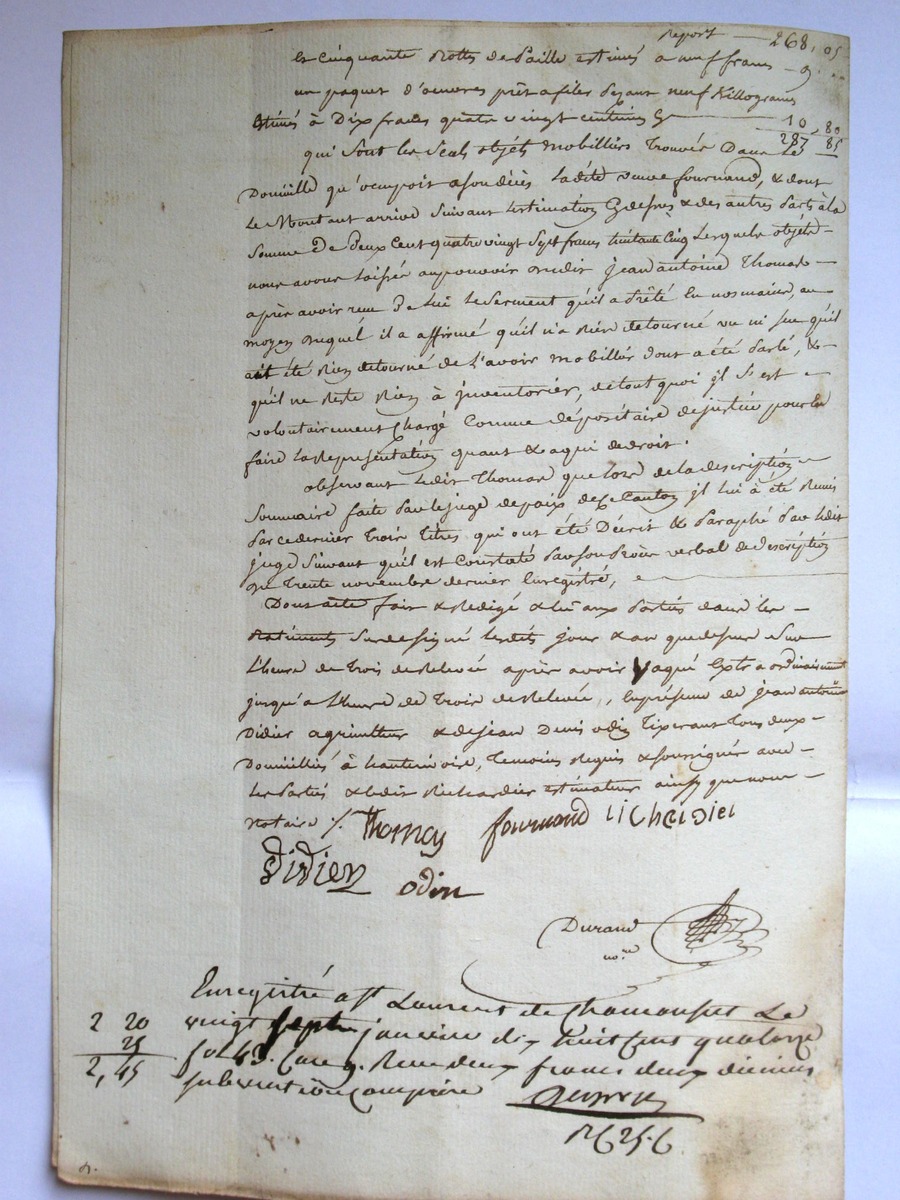 Report — 268, 05
et cinquante Bottes de Paille estimés a neuf francs — 9. ..
un paquet d'oeuvres prêt a filer pesant neuf Killogrames
Estimés à Dix francs quatre vingt centimes Cy — 10, 80
287, 85
qui sont les seuls objéts mobilliers trouvés Dans le
Domicille qu'ocupoit a son décès ladite veuve fournand, & dont
le Montant arrive suivant l'estimation Cy dessus & des autres parts à la
somme De deux cent quatre vingt sept francs huitante cinq lesquels objéts
nous avons laissés au pouvoir dudit jean antoine Thomas
après avoir reçu De lui le serment qu'il a prêté En nos mains, au
moyen duquel il a affirmé qu'il n'a rien detourné vu ni seu qu'il
ait été rien detourné de l'avoir mobillier dont a été parlé, &
qu'il ne reste rien à jnventorier, de tout quoi jl s'est
volontairement Chargé Comme dépositaire de justice pour En
faire la Représentation quant & a qui de droit.
observant ledit Thomas que lors de la description
Sommaire faite par le juge de paix de ce Canton jl lui à été Remis
par ce dernier trois titres qui ont été Décrit & Paraphé par ledit
juge suivant qu'il est Constaté par son procès verbal de description
du trente novembre dernier Enregistré,
Dont acte fait & Redigé & lu aux parties dans les
Batiments sus designé lesdits jour & an que dessus sur
l'heure de trois de Relevée après avoir vaqué Extraordinairement
jusqu'a l'heure de trois de Relevée, En présence de jean antoine
Didier agriculteur & de jean Denis odin tixerant tous deux
Domicilliés à hauterivoire, temoins Requis & soussignés avec
les parties & ledit Richardier estimateur ainsy que nous
notaire ./.
Thomas fournand richerdier
Didier odin
Durand
no.re
Enregistré a St Laurent de Chamousset Le
vingt sept janvier dix huit cent quatorze
fol 43. Case 9. Reçu deux francs deux decimes
subvention comprise
2 20
25
2, 45